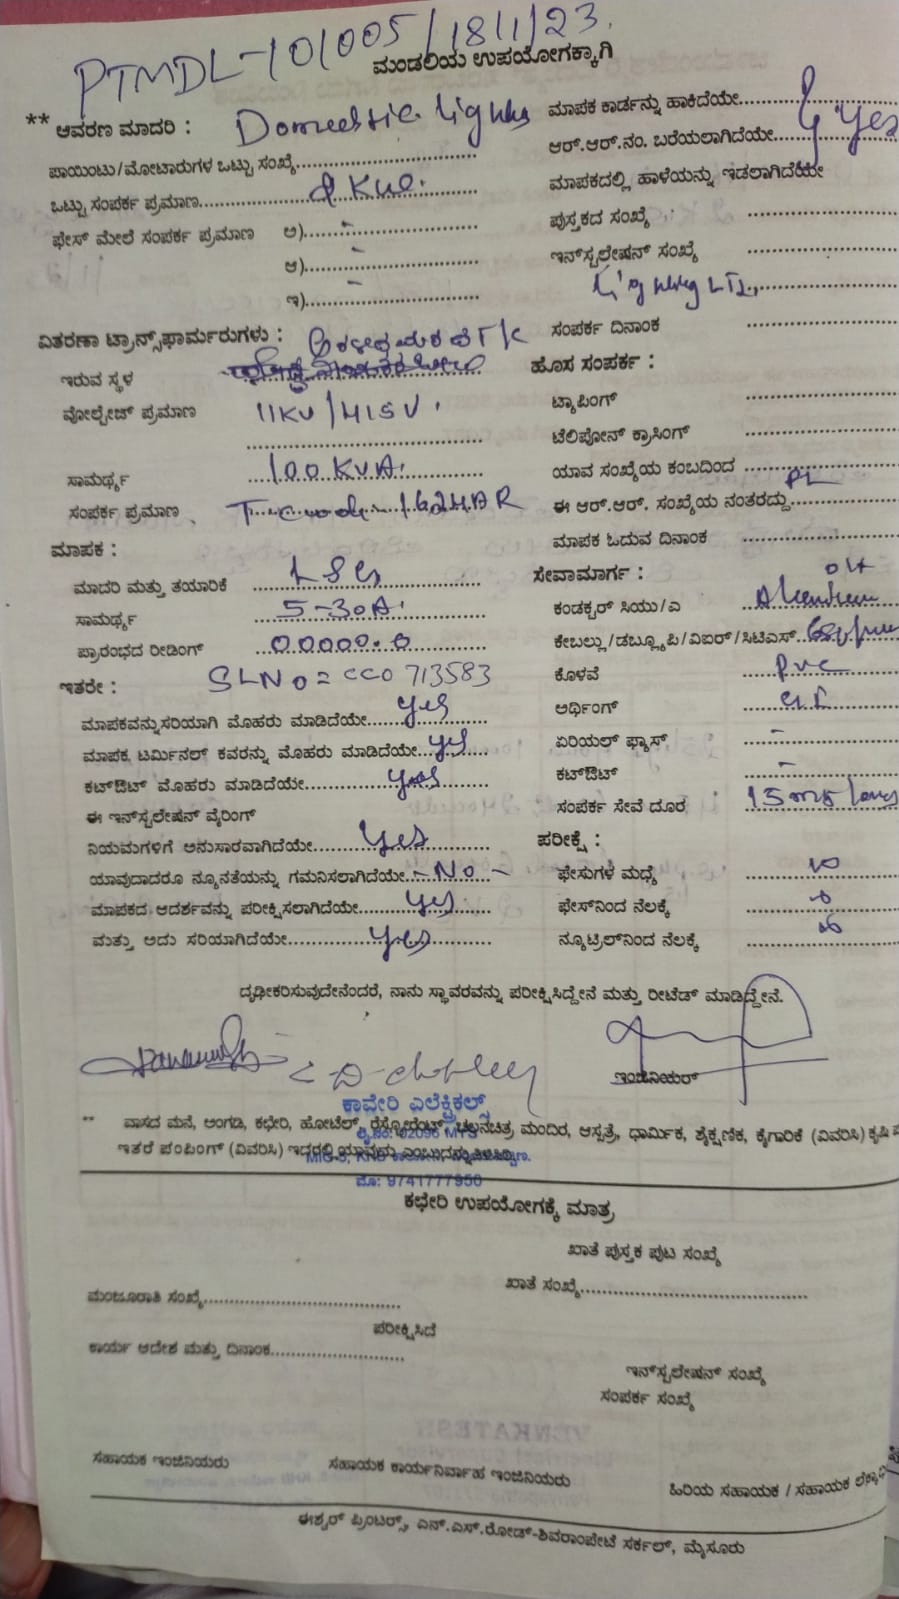 PTMDL-101005/18/1/23.
ಮಂಡಲಿಯ ಉಪಯೋಗಕ್ಕಾಗಿ
** ಆವರಣ ಮಾದರಿ : Domestic lights
ಪಾಯಿಂಟು/ಮೋಟಾರುಗಳ ಒಟ್ಟು ಸಂಖ್ಯೆ
ಒಟ್ಟು ಸಂಪರ್ಕ ಪ್ರಮಾಣ
ಫೇಸ್ ಮೇಲೆ ಸಂಪರ್ಕ ಪ್ರಮಾಣ ಅ) -
ಆ) -
ಇ) -
ವಿತರಣಾ ಟ್ರಾನ್ಸ್‌ಫಾರ್ಮರುಗಳು :
ಇರುವ ಸ್ಥಳ
ವೋಲ್ಟೇಜ್ ಪ್ರಮಾಣ 11KV/415V.
ಸಾಮರ್ಥ್ಯ 100 KVA.
ಸಂಪರ್ಕ ಪ್ರಮಾಣ
ಮಾಪಕ :
ಮಾದರಿ ಮತ್ತು ತಯಾರಿಕೆ
ಸಾಮರ್ಥ್ಯ 5-30A.
ಪ್ರಾರಂಭದ ರೀಡಿಂಗ್ 00000.0
ಇತರೇ : SLNO = CC0713583
ಮಾಪಕವನ್ನು ಸರಿಯಾಗಿ ಮೊಹರು ಮಾಡಿದೆಯೇ yes
ಮಾಪಕ ಟರ್ಮಿನಲ್ ಕವರನ್ನು ಮೊಹರು ಮಾಡಿದೆಯೇ yes
ಕಟ್‌ಔಟ್ ಮೊಹರು ಮಾಡಿದೆಯೇ yes
ಈ ಇನ್‌ಸ್ಟಲೇಷನ್ ವೈರಿಂಗ್
ನಿಯಮಗಳಿಗೆ ಅನುಸಾರವಾಗಿದೆಯೇ yes
ಯಾವುದಾದರೂ ನ್ಯೂನತೆಯನ್ನು ಗಮನಿಸಲಾಗಿದೆಯೇ - No -
ಮಾಪಕದ ಆದರ್ಶವನ್ನು ಪರೀಕ್ಷಿಸಲಾಗಿದೆಯೇ yes
ಮತ್ತು ಅದು ಸರಿಯಾಗಿದೆಯೇ yes
ಮಾಪಕ ಕಾರ್ಡನ್ನು ಹಾಕಿದೆಯೇ
ಆರ್.ಆರ್.ನಂ. ಬರೆಯಲಾಗಿದೆಯೇ yes
ಮಾಪಕದಲ್ಲಿ ಹಾಳೆಯನ್ನು ಇಡಲಾಗಿದೆಯೇ
ಪುಸ್ತಕದ ಸಂಖ್ಯೆ
ಇನ್‌ಸ್ಟಲೇಷನ್ ಸಂಖ್ಯೆ
ಸಂಪರ್ಕ ದಿನಾಂಕ
ಹೊಸ ಸಂಪರ್ಕ :
ಟ್ಯಾಪಿಂಗ್
ಟೆಲಿಪೋನ್ ಕ್ರಾಸಿಂಗ್
ಯಾವ ಸಂಖ್ಯೆಯ ಕಂಬದಿಂದ
ಈ ಆರ್.ಆರ್. ಸಂಖ್ಯೆಯ ನಂತರದ್ದು PL
ಮಾಪಕ ಓದುವ ದಿನಾಂಕ
ಸೇವಾಮಾರ್ಗ :
ಕಂಡಕ್ಟರ್ ಸಿಯು/ಎ
ಕೇಬಲ್ಲು/ಡಬ್ಲ್ಯೂಪಿ/ವಿಐಆರ್/ಸಿಟಿಎಸ್
ಕೊಳವೆ PVC
ಅರ್ಥಿಂಗ್ G.I.
ಏರಿಯಲ್ ಫ್ಯೂಸ್ -
ಕಟ್‌ಔಟ್ -
ಸಂಪರ್ಕ ಸೇವೆ ದೂರ 15 mts
ಪರೀಕ್ಷೆ :
ಫೇಸುಗಳ ಮಧ್ಯೆ
ಫೇಸ್‌ನಿಂದ ನೆಲಕ್ಕೆ
ನ್ಯೂಟ್ರಿಲ್‌ನಿಂದ ನೆಲಕ್ಕೆ
ದೃಢೀಕರಿಸುವುದೇನೆಂದರೆ, ನಾನು ಸ್ಥಾವರವನ್ನು ಪರೀಕ್ಷಿಸಿದ್ದೇನೆ ಮತ್ತು ರೀಟೆಡ್ ಮಾಡಿದ್ದೇನೆ.
ಇಂಜಿನಿಯರ್
ಕಾವೇರಿ ಎಲೆಕ್ಟ್ರಿಕಲ್ಸ್
** ವಾಸದ ಮನೆ, ಅಂಗಡಿ, ಕಛೇರಿ, ಹೋಟೆಲ್, ರೆಸ್ಟೋರೆಂಟ್, ಚಲನಚಿತ್ರ ಮಂದಿರ, ಆಸ್ಪತ್ರೆ, ಧಾರ್ಮಿಕ, ಶೈಕ್ಷಣಿಕ, ಕೈಗಾರಿಕೆ (ವಿವರಿಸಿ) ಕೃಷಿ
ಇತರೆ ಪಂಪಿಂಗ್ (ವಿವರಿಸಿ) ಇದ್ದರಲ್ಲಿ ಯಾವುದು ಎಂಬುದನ್ನು ತಿಳಿಸಿರಿ.
ಮೊ: 9741777950
ಕಛೇರಿ ಉಪಯೋಗಕ್ಕೆ ಮಾತ್ರ
ಖಾತೆ ಪುಸ್ತಕ ಪುಟ ಸಂಖ್ಯೆ
ಖಾತೆ ಸಂಖ್ಯೆ
ಮಂಜೂರಾತಿ ಸಂಖ್ಯೆ
ಪರೀಕ್ಷಿಸಿದೆ
ಕಾರ್ಯ ಆದೇಶ ಮತ್ತು ದಿನಾಂಕ
ಇನ್‌ಸ್ಟಲೇಷನ್ ಸಂಖ್ಯೆ
ಸಂಪರ್ಕ ಸಂಖ್ಯೆ
ಸಹಾಯಕ ಇಂಜಿನಿಯರು ಸಹಾಯಕ ಕಾರ್ಯನಿರ್ವಾಹ ಇಂಜಿನಿಯರು ಹಿರಿಯ ಸಹಾಯಕ / ಸಹಾಯಕ
ಈಶ್ವರ್ ಪ್ರಿಂಟರ್ಸ್, ಎನ್.ಎಸ್.ರೋಡ್-ಶಿವರಾಂಪೇಟೆ ಸರ್ಕಲ್, ಮೈಸೂರು